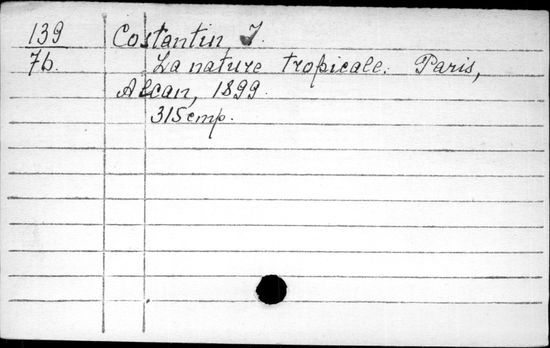 139 Costantin, J.
76. La nature tropicale. Paris,
Alcan, 1899.
315 стр.